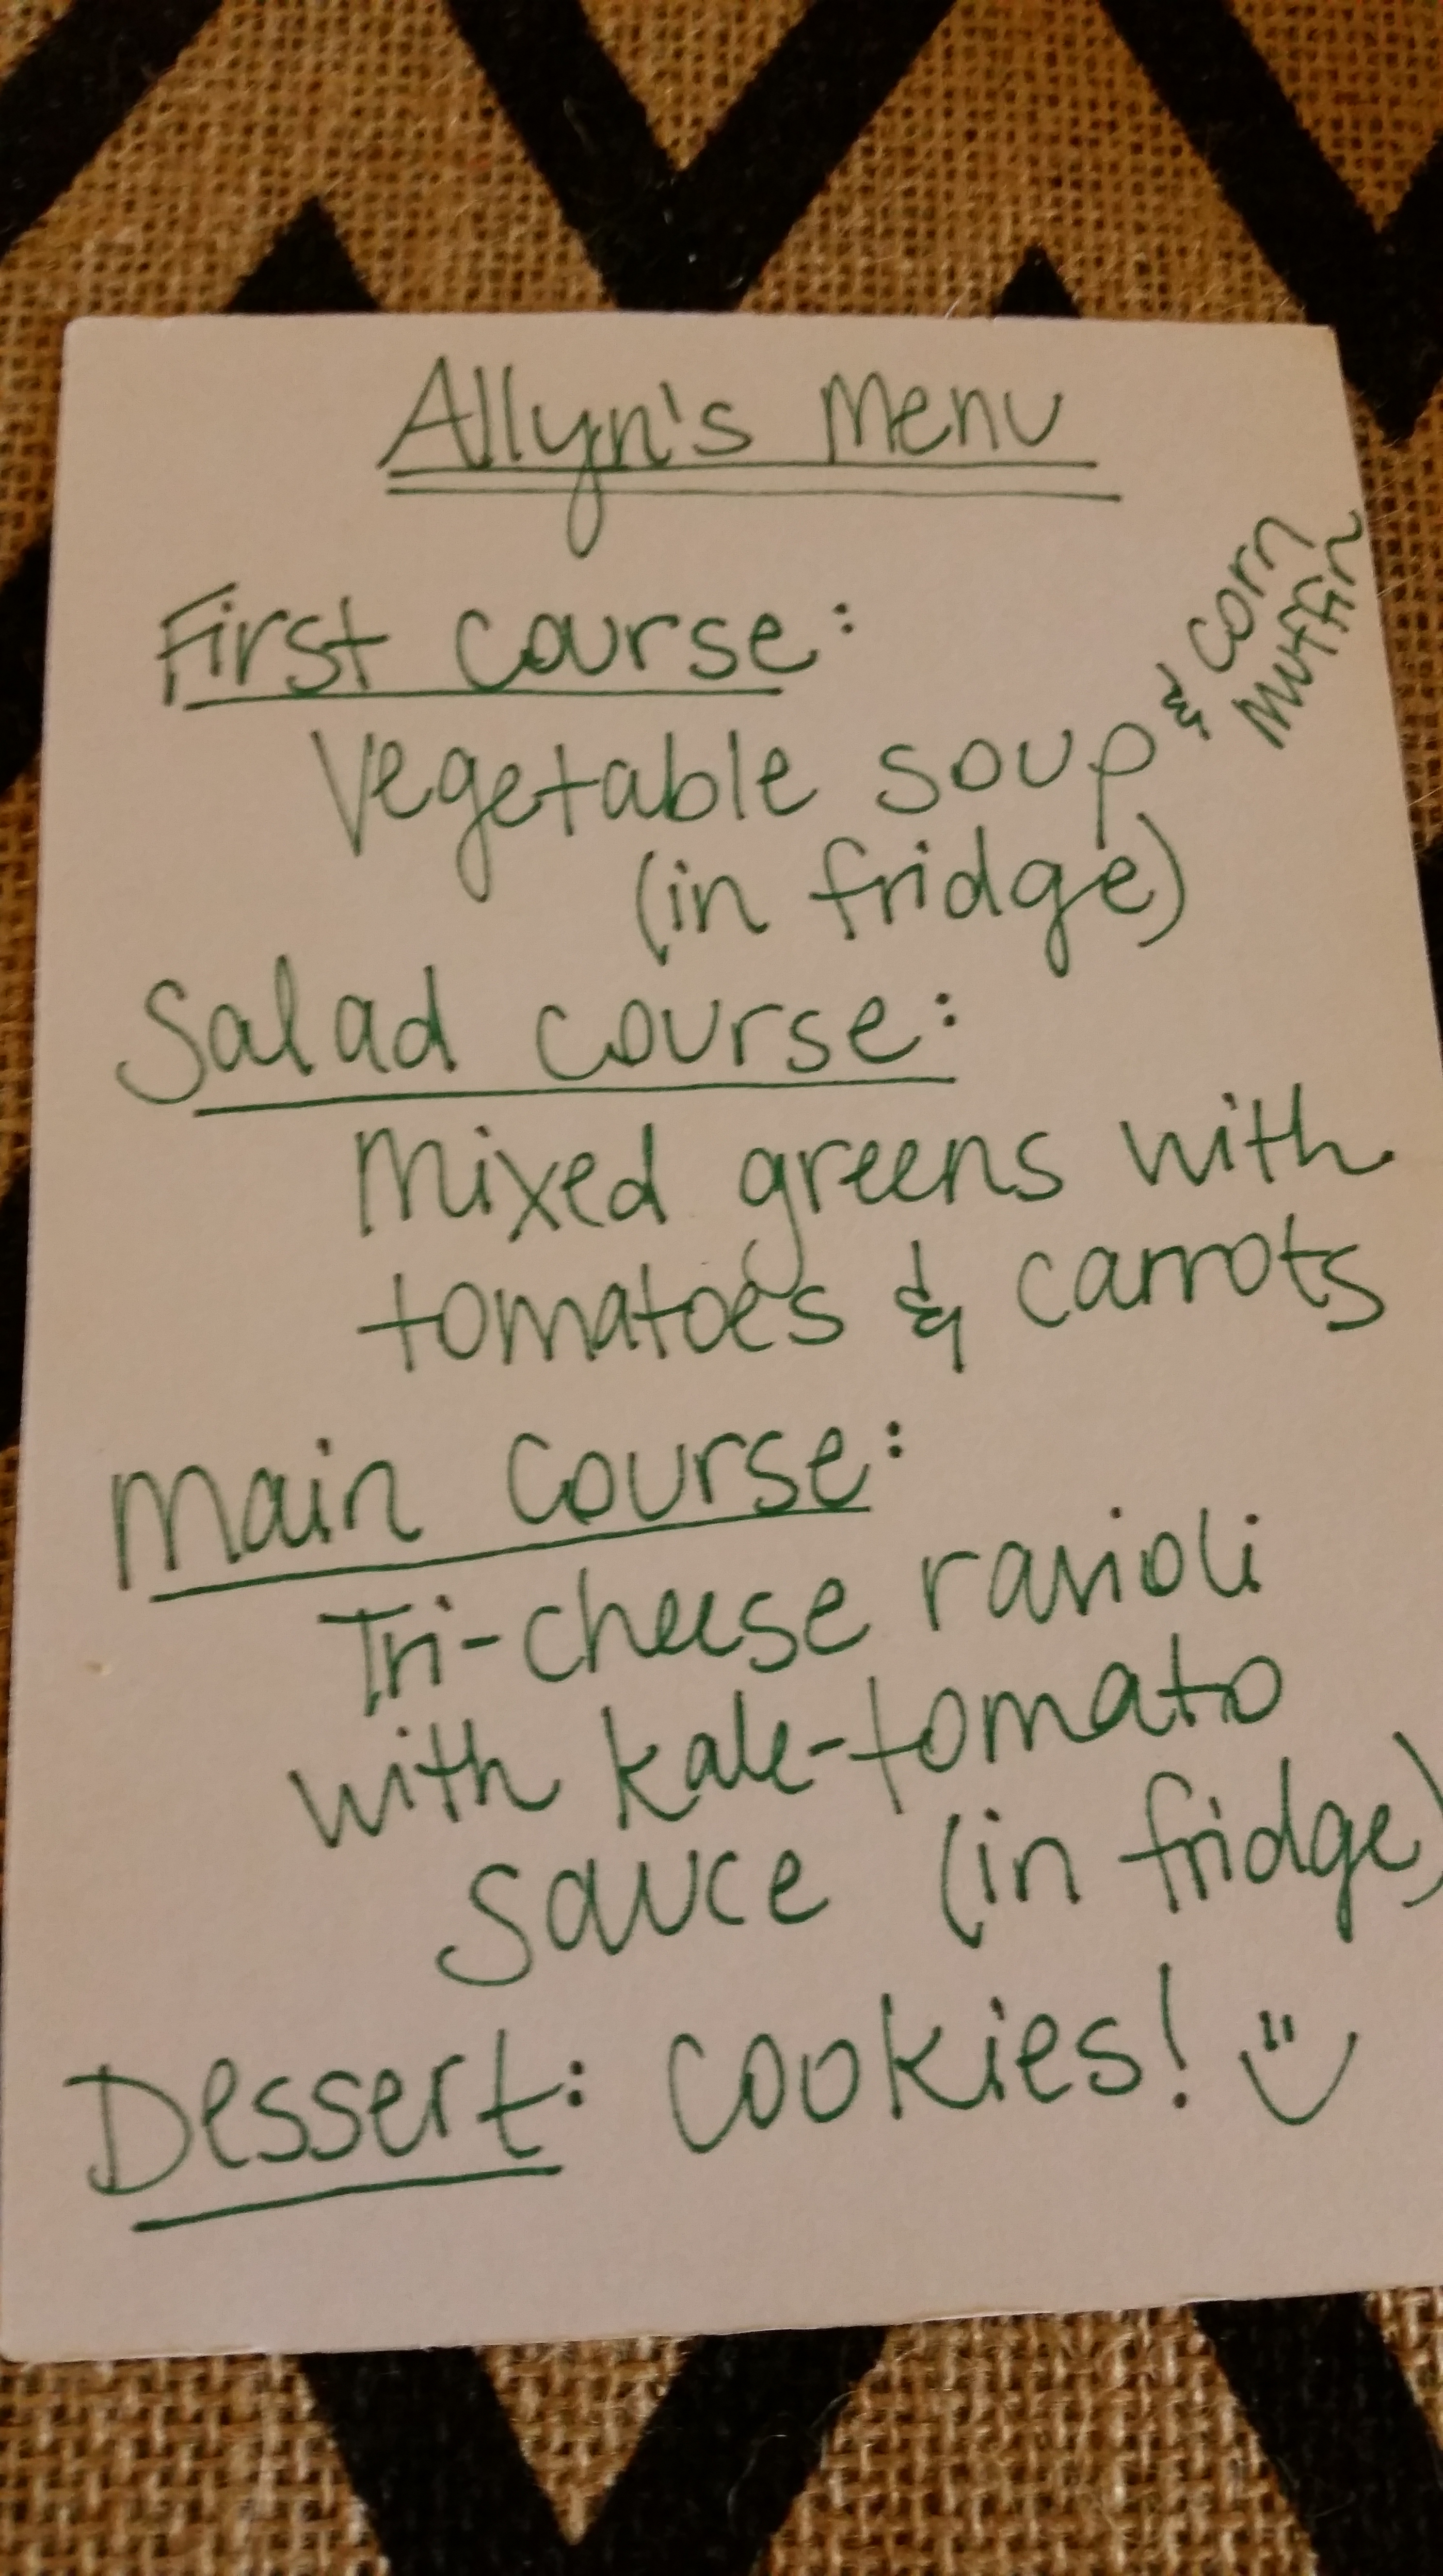 Allyn's Menu
First course:
Vegetable soup & corn
muffin
(in fridge)
Salad course:
Mixed greens with
tomatoes & carrots
Main course:
Tri-cheese ravioli
with kale-tomato
sauce (in fridge)
Dessert: cookies!